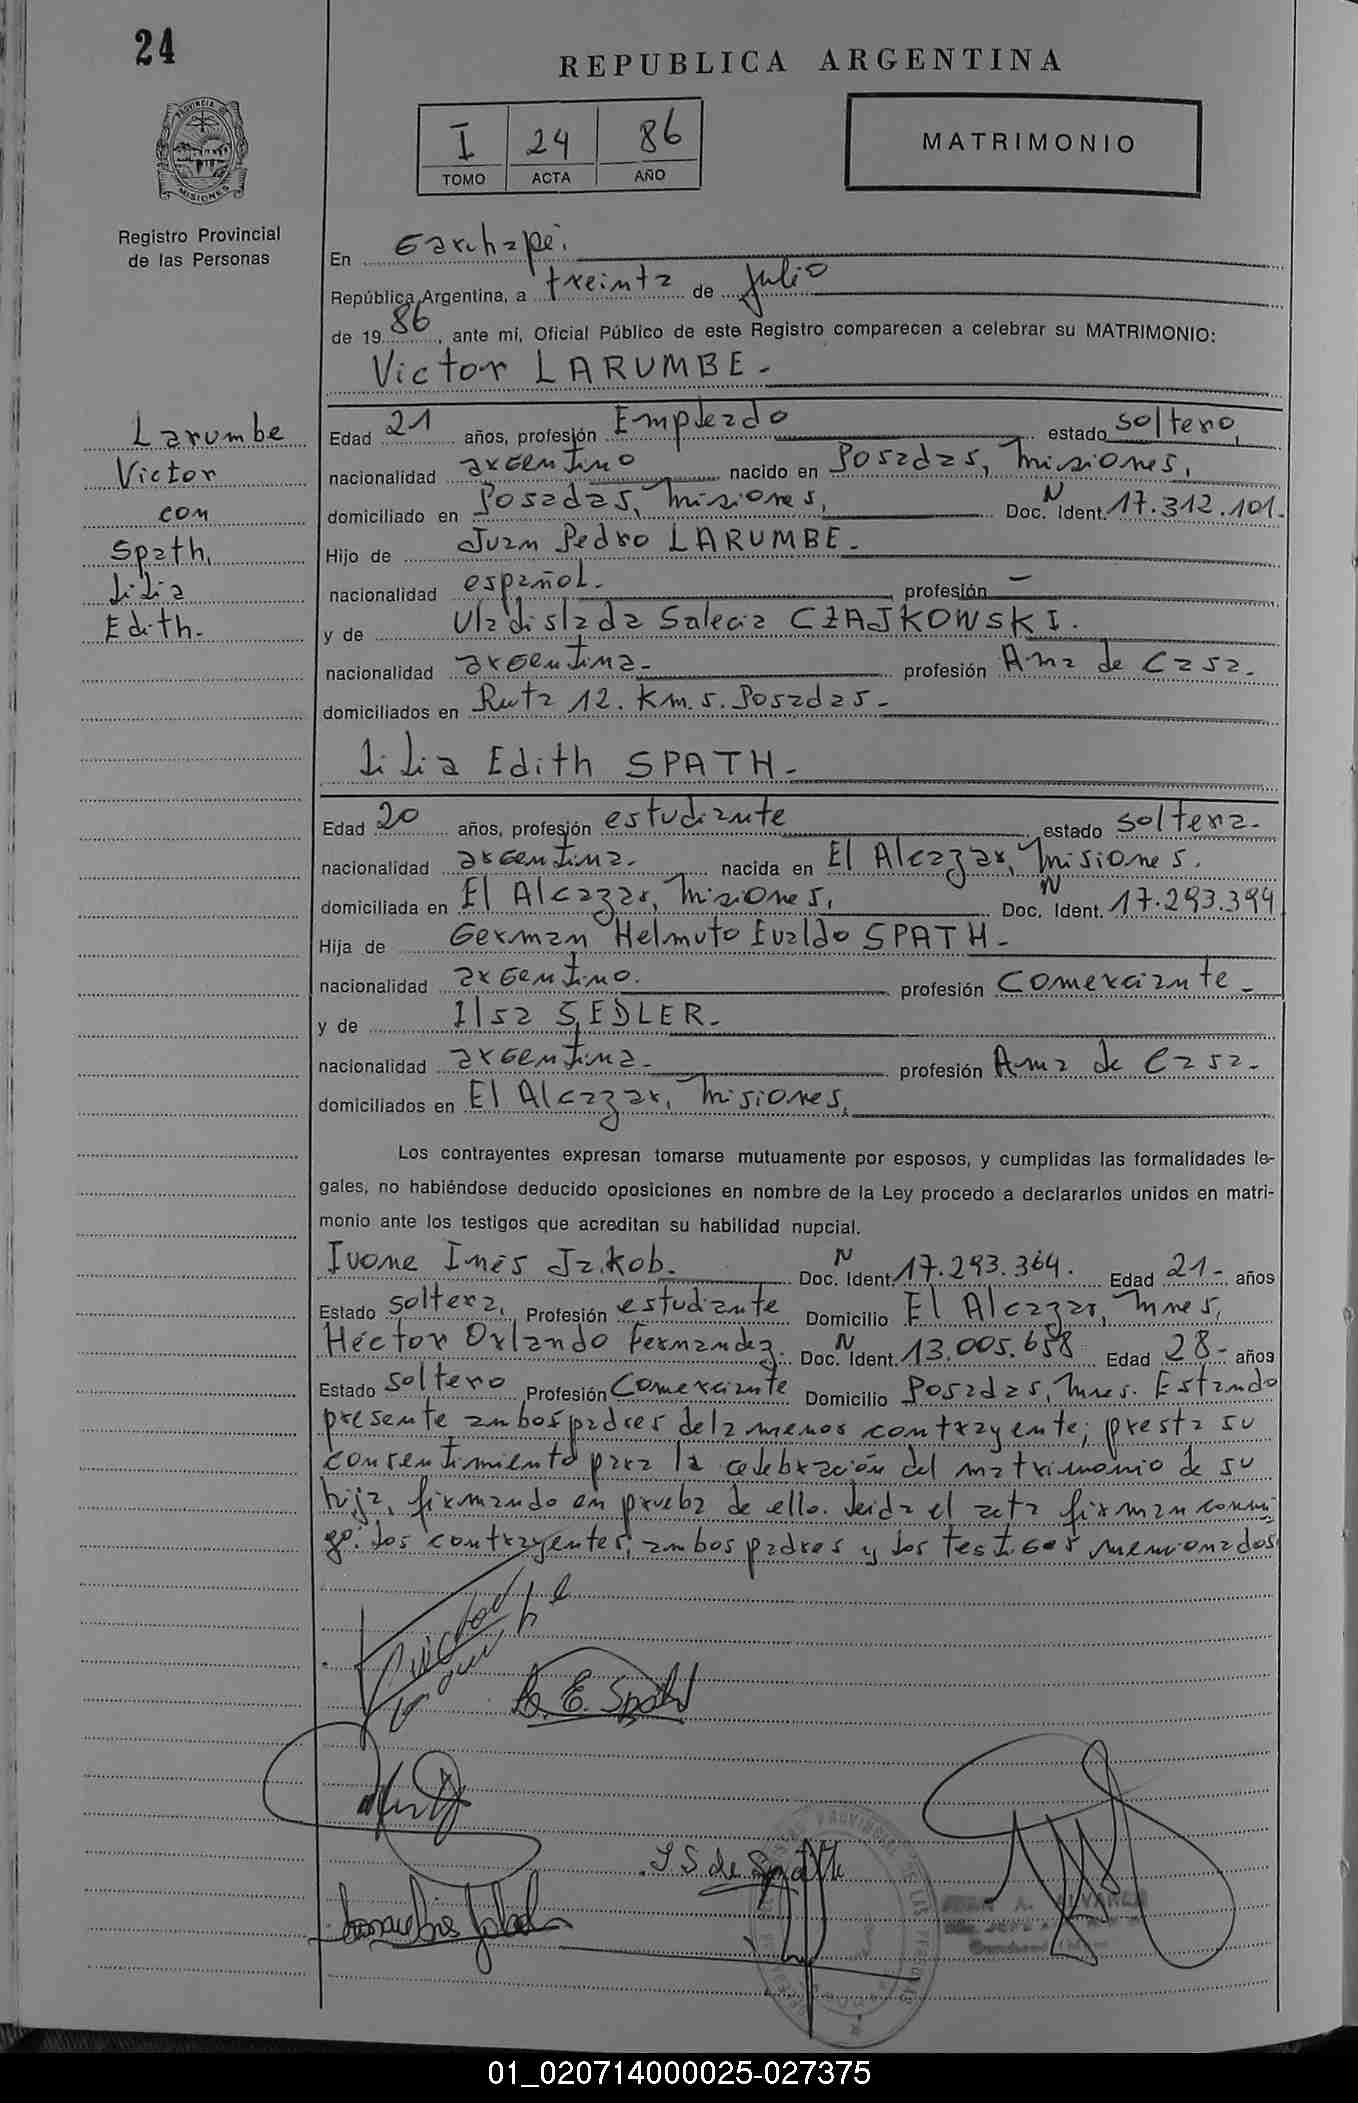 24
REPUBLICA ARGENTINA
PROVINCIA DE MISIONES
I 24 86
TOMO ACTA AÑO
MATRIMONIO
Registro Provincial
de las Personas
En Garuhapé.
República Argentina, a treinta de Julio
de 1986, ante mí, Oficial Público de este Registro comparecen a celebrar su MATRIMONIO:
Victor LARUMBE.-
Larumbe
Victor
con
Spath,
Lilia
Edith.-
Edad 21 años, profesión Empleado estado soltero,
nacionalidad argentino nacido en Posadas, Misiones,
domiciliado en Posadas, Misiones, Doc. N Ident. 17.312.101.
Hijo de Juan Pedro LARUMBE.-
nacionalidad español. profesión -
y de Uladislada Salecia CZAJKOWSKI.
nacionalidad argentina.- profesión Ama de Casa.
domiciliados en Ruta 12. Km. 5. Posadas.-
Lilia Edith SPATH.-
Edad 20 años, profesión estudiante estado soltera.
nacionalidad argentina. nacida en El Alcazar, Misiones.
domiciliada en El Alcazar, Misiones, Doc. N Ident. 17.293.394
Hija de German Helmuto Evaldo SPATH.-
nacionalidad argentino. profesión Comerciante.-
y de Ilsa SEDLER.-
nacionalidad argentina.- profesión Ama de Casa.-
domiciliados en El Alcazar, Misiones,
Los contrayentes expresan tomarse mutuamente por esposos, y cumplidas las formalidades le-
gales, no habiéndose deducido oposiciones en nombre de la Ley procedo a declararlos unidos en matri-
monio ante los testigos que acreditan su habilidad nupcial.
Ivone Inés Jakob. Doc. N Ident. 17.293.364. Edad 21- años
Estado soltera, Profesión estudiante Domicilio El Alcazar, Mnes,
Héctor Orlando Fernandez. Doc. N Ident. 13.005.658 Edad 28- años
Estado soltero Profesión Comerciante Domicilio Posadas, Mnes. Estando
presente ambos padres de la menor contrayente; presta su
consentimiento para la celebración del matrimonio de su
hija, firmando en prueba de ello. Leida el acta firman conmi
go: los contrayentes, ambos padres y los testigos mencionados
L. E. Spath
I S de Spath
01_020714000025-027375